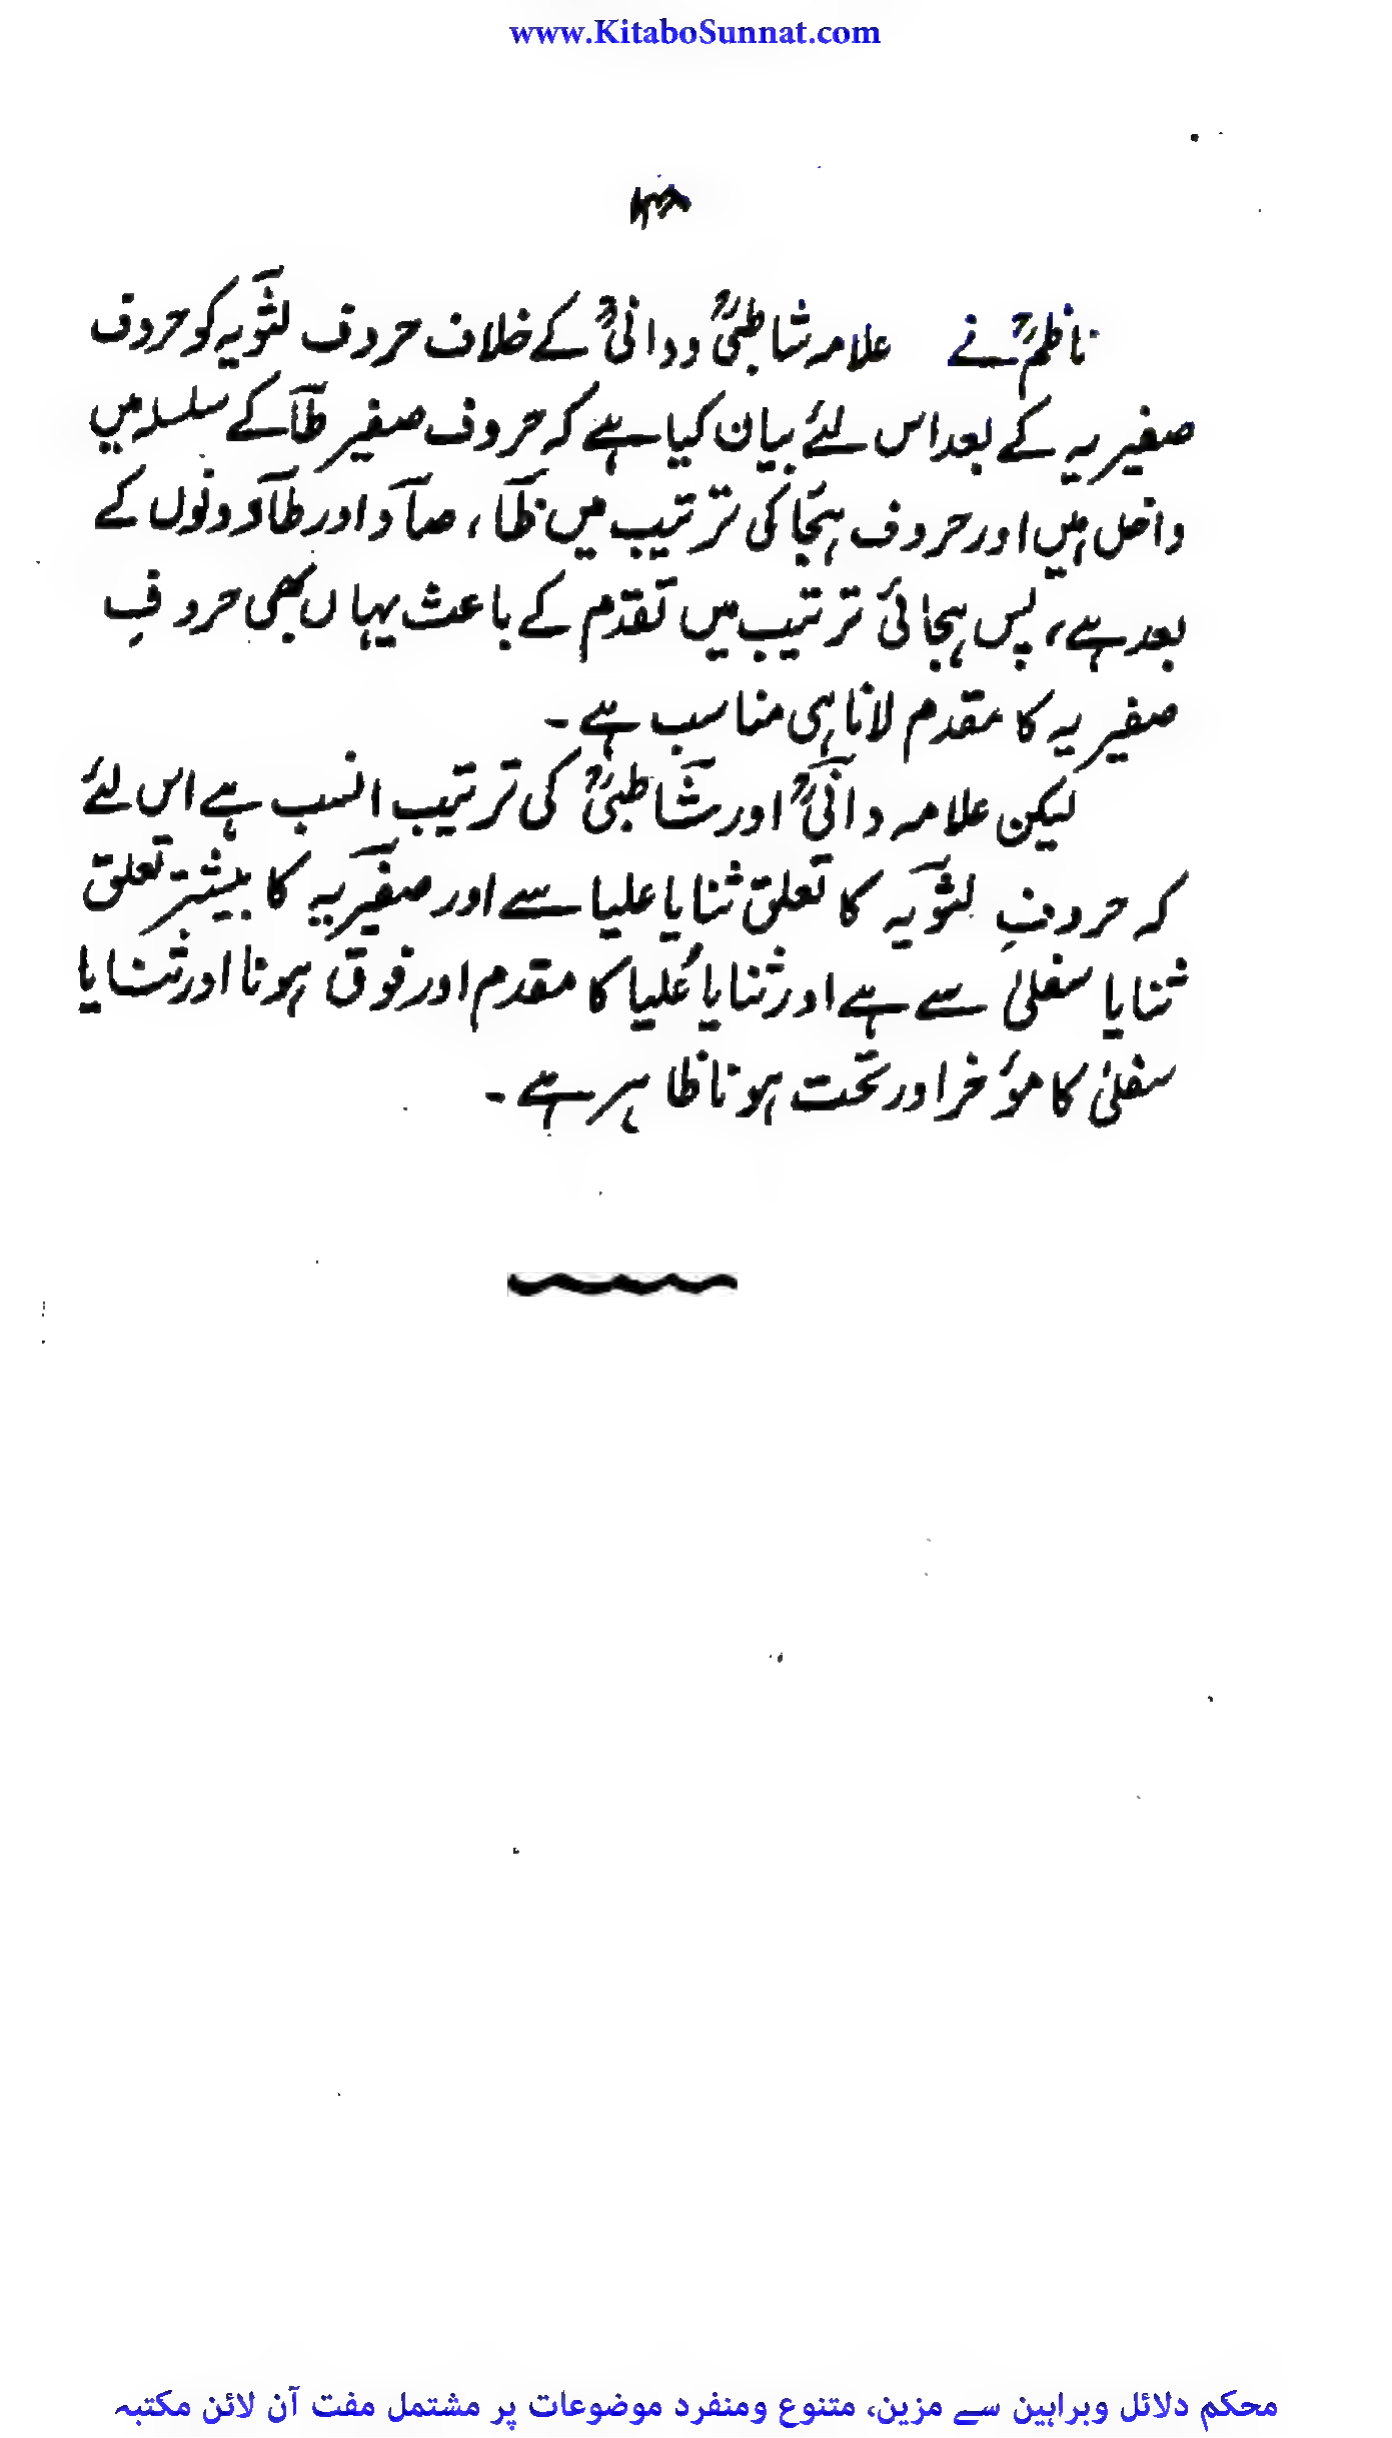 www.KitaboSunnat.com
ناظمؒ نے علامہ شاطبیؒ ودانیؒ کے خلاف حروف لثویہ کو حروف
صفیریہ کے بعد اس لئے بیان کیا ہے کہ حروف صفیر طآ کے سلسلہ میں
داخل ہیں اور حروف ہجَا کی ترتیب میں ظآ، صآد اور طآد ونوں کے
بعد ہے، پس ہجائی ترتیب میں تقدم کے باعث یہاں بھی حروفِ
صفیریہ کا مقدم لانا ہی مناسب ہے۔
لیکن علامہ دانیؒ اور شاطبیؒ کی ترتیب انسب ہے اس لئے
کہ حروفِ لثویہ کا تعلق ثنایا علیا سے اور صفیریہ کا بیشتر تعلق
ثنایا سفلیٰ سے ہے اور ثنایا عُلیا کا مقدم اور فوق ہونا اور ثنایا
سفلیٰ کا مؤخر اور تحت ہونا ظاہر ہے۔
محکم دلائل وبراہین سے مزین، متنوع ومنفرد موضوعات پر مشتمل مفت آن لائن مکتبہ